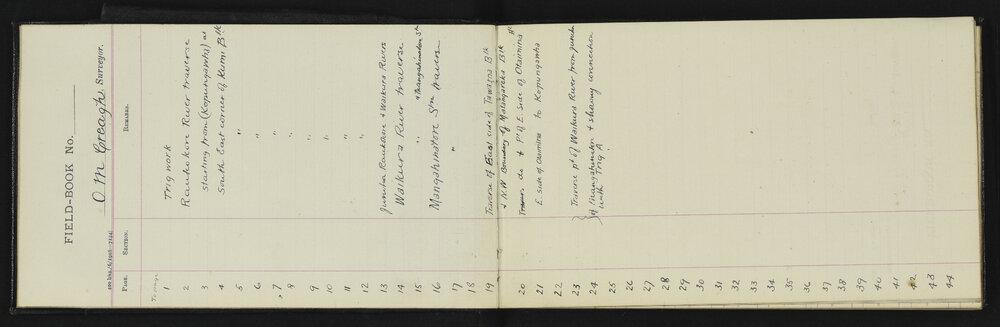 FIELD-BOOK No.
O M Creagh, Surveyor.
PAGE. SECTION. REMARKS.
1 Trig work
2 Raukokore River traverse
3 starting from (Kopungawha) at
4 South East corner of Kumi Blk
5 "
6 "
7 "
8 "
9 "
10 "
11 "
12 "
13 Junction Raukokore & Waikura Rivers
14 Waikura River traverse
15 " & Mangahinatore Stm
16 Mangahinatore Stm traverse
17 "
18
19 Traverse of East side of Tawaroa Blk
& N.W Boundary of Matangareka Blk
20 Traverse do & Pt of E. Side of Otaimina
21 E. side of Otaimina to Kopungawha
22
23 Traverse pt of Waikura River from junctn
24 of Mangahinatore & shewing connection
with Trig A
25
26
27
28
29
30
31
32
33
34
35
36
37
38
39
40
41
42
43
44